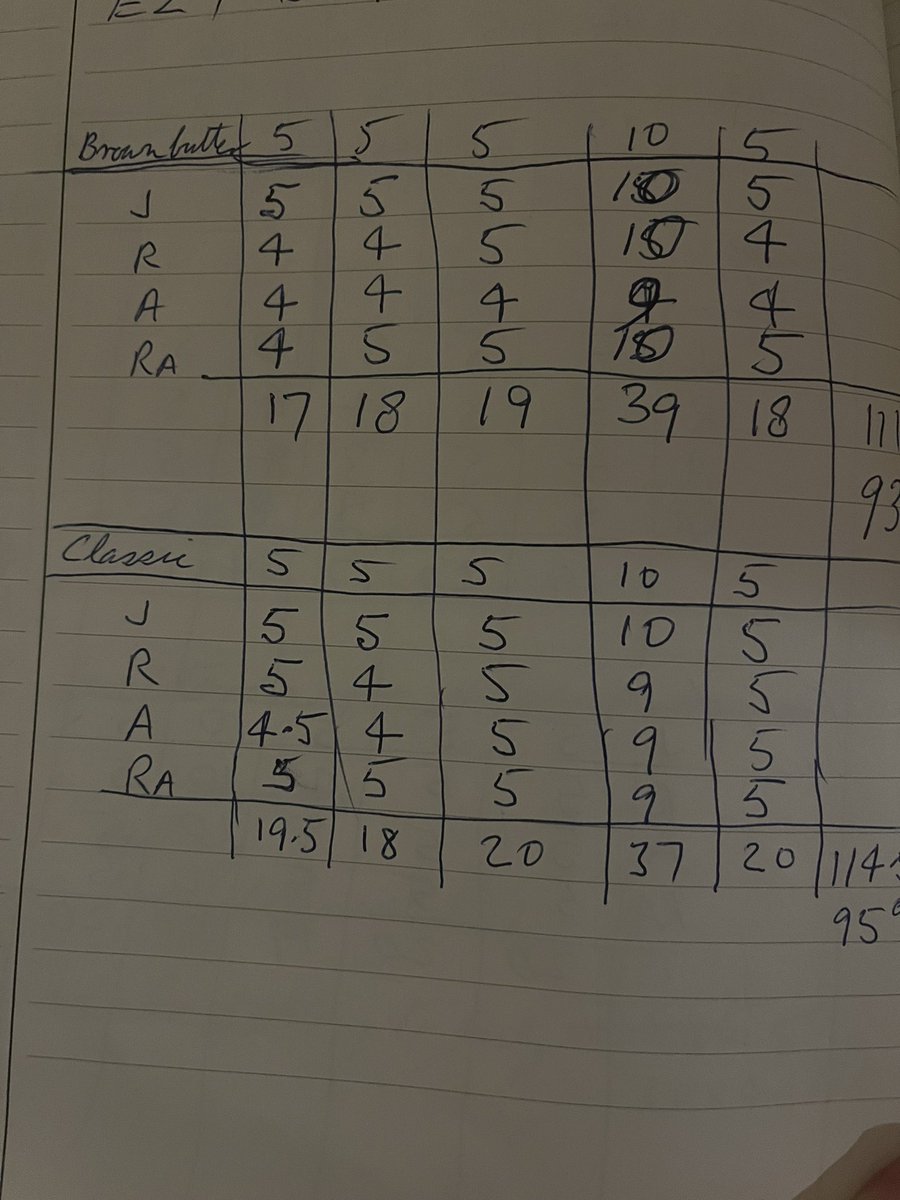 Brown butter 5 5 5 10 5
J 5 5 5 10 5
R 4 4 5 10 4
A 4 4 4 9 4
RA 4 5 5 10 5
17 18 19 39 18 111
93
Classic 5 5 5 10 5
J 5 5 5 10 5
R 5 4 5 9 5
A 4.5 4 5 9 5
RA 5 5 5 9 5
19.5 18 20 37 20 114.5
95